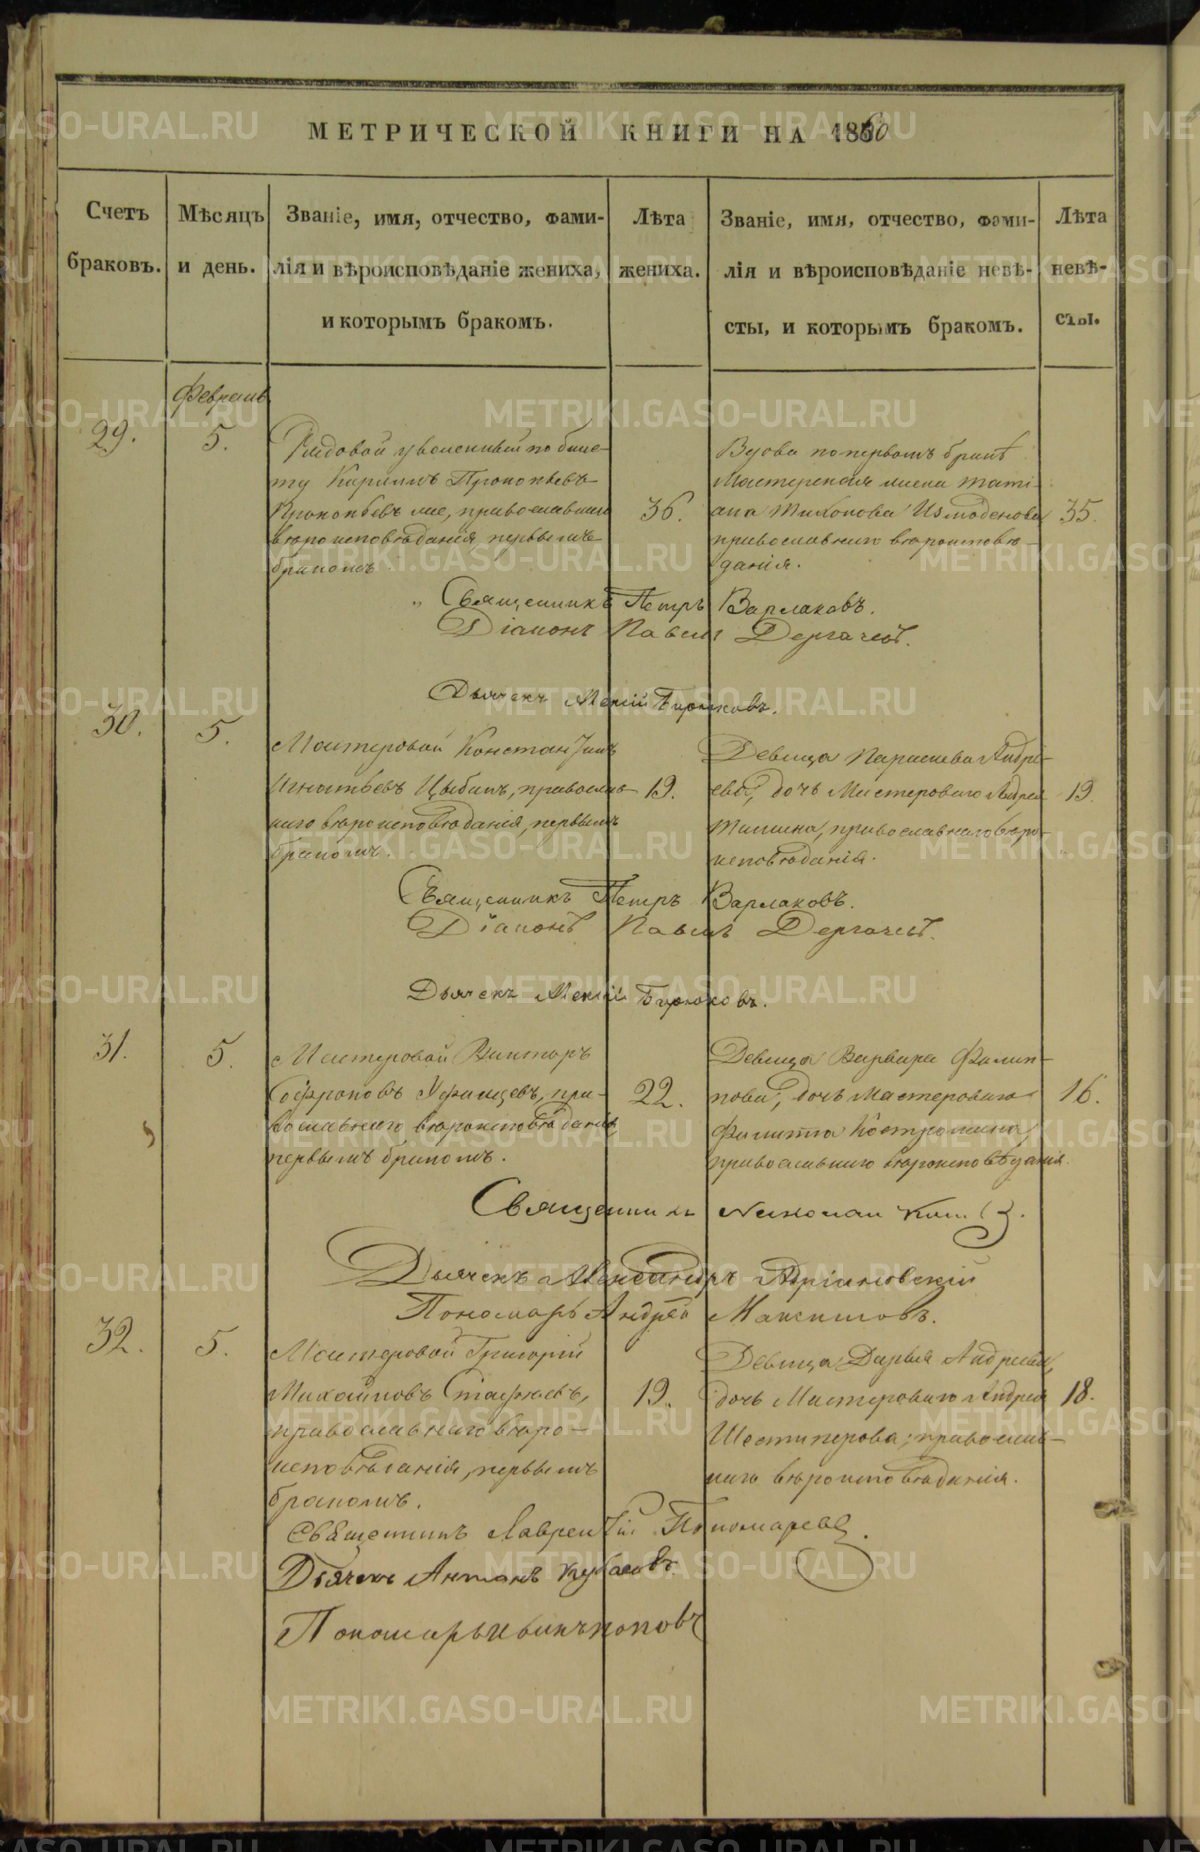 МЕТРИЧЕСКОЙ КНИГИ НА 1860
Счетъ браковъ.
Мѣсяцъ и день.
Званіе, имя, отчество, фами-
лія и вѣроисповѣданіе жениха,
и которымъ бракомъ.
Лѣта
жениха.
Званіе, имя, отчество, фами-
лія и вѣроисповѣданіе невѣ-
сты, и которымъ бракомъ.
Лѣта
невѣ-
сты.
Февраль
29.
5.
Рядовой уволенный по биле-
ту Кириллъ Прокопьевъ
православнаго
вѣроисповѣданія, первымъ
бракомъ
36.
Вдова по первомъ бракѣ
Мастерская жена Тати-
ана Тихонова Измоденова
православнаго вѣроисповѣ-
данія.
35.
Священникъ Петръ Варлаковъ.
Діаконъ Павелъ Дергачевъ.
Дьячекъ Алексій Бирюковъ.
30.
5.
Мастеровой Константинъ
Игнатьевъ Цыбинъ, православ-
наго вѣроисповѣданія, первымъ
бракомъ.
19.
Девица Параскева Андре-
ева, дочь Мастероваго Андрея
православнаго вѣро-
исповѣданія.
19.
Священникъ Петръ Варлаковъ.
Діаконъ Павелъ Дергачевъ.
Дьячекъ Алексій Бирюковъ.
31.
5.
Мастеровой Викторъ
Софроновъ Уфинцевъ, пра-
вославнаго вѣроисповѣданія,
первымъ бракомъ.
22.
Девица Варвара Филип-
пова, дочь Мастероваго
Филиппа Костромина,
православнаго вѣроисповѣданія.
16.
Священникъ Николай
Дьячекъ Александръ Адріановскій
Пономарь Андрей Максимовъ.
32.
5.
Мастеровой Григорій
Михайловъ Стафѣевъ,
православнаго вѣро-
исповѣданія, первымъ
бракомъ.
19.
Девица Дарья Андреева,
дочь Мастероваго Андрея
Шестиперова, православ-
наго вѣроисповѣданія.
18.
Священникъ Лаврентій Пономаревъ.
Дьячекъ Антонъ Кубасовъ.
Пономарь Иванъ Поповъ
METRIKI.GASO-URAL.RU